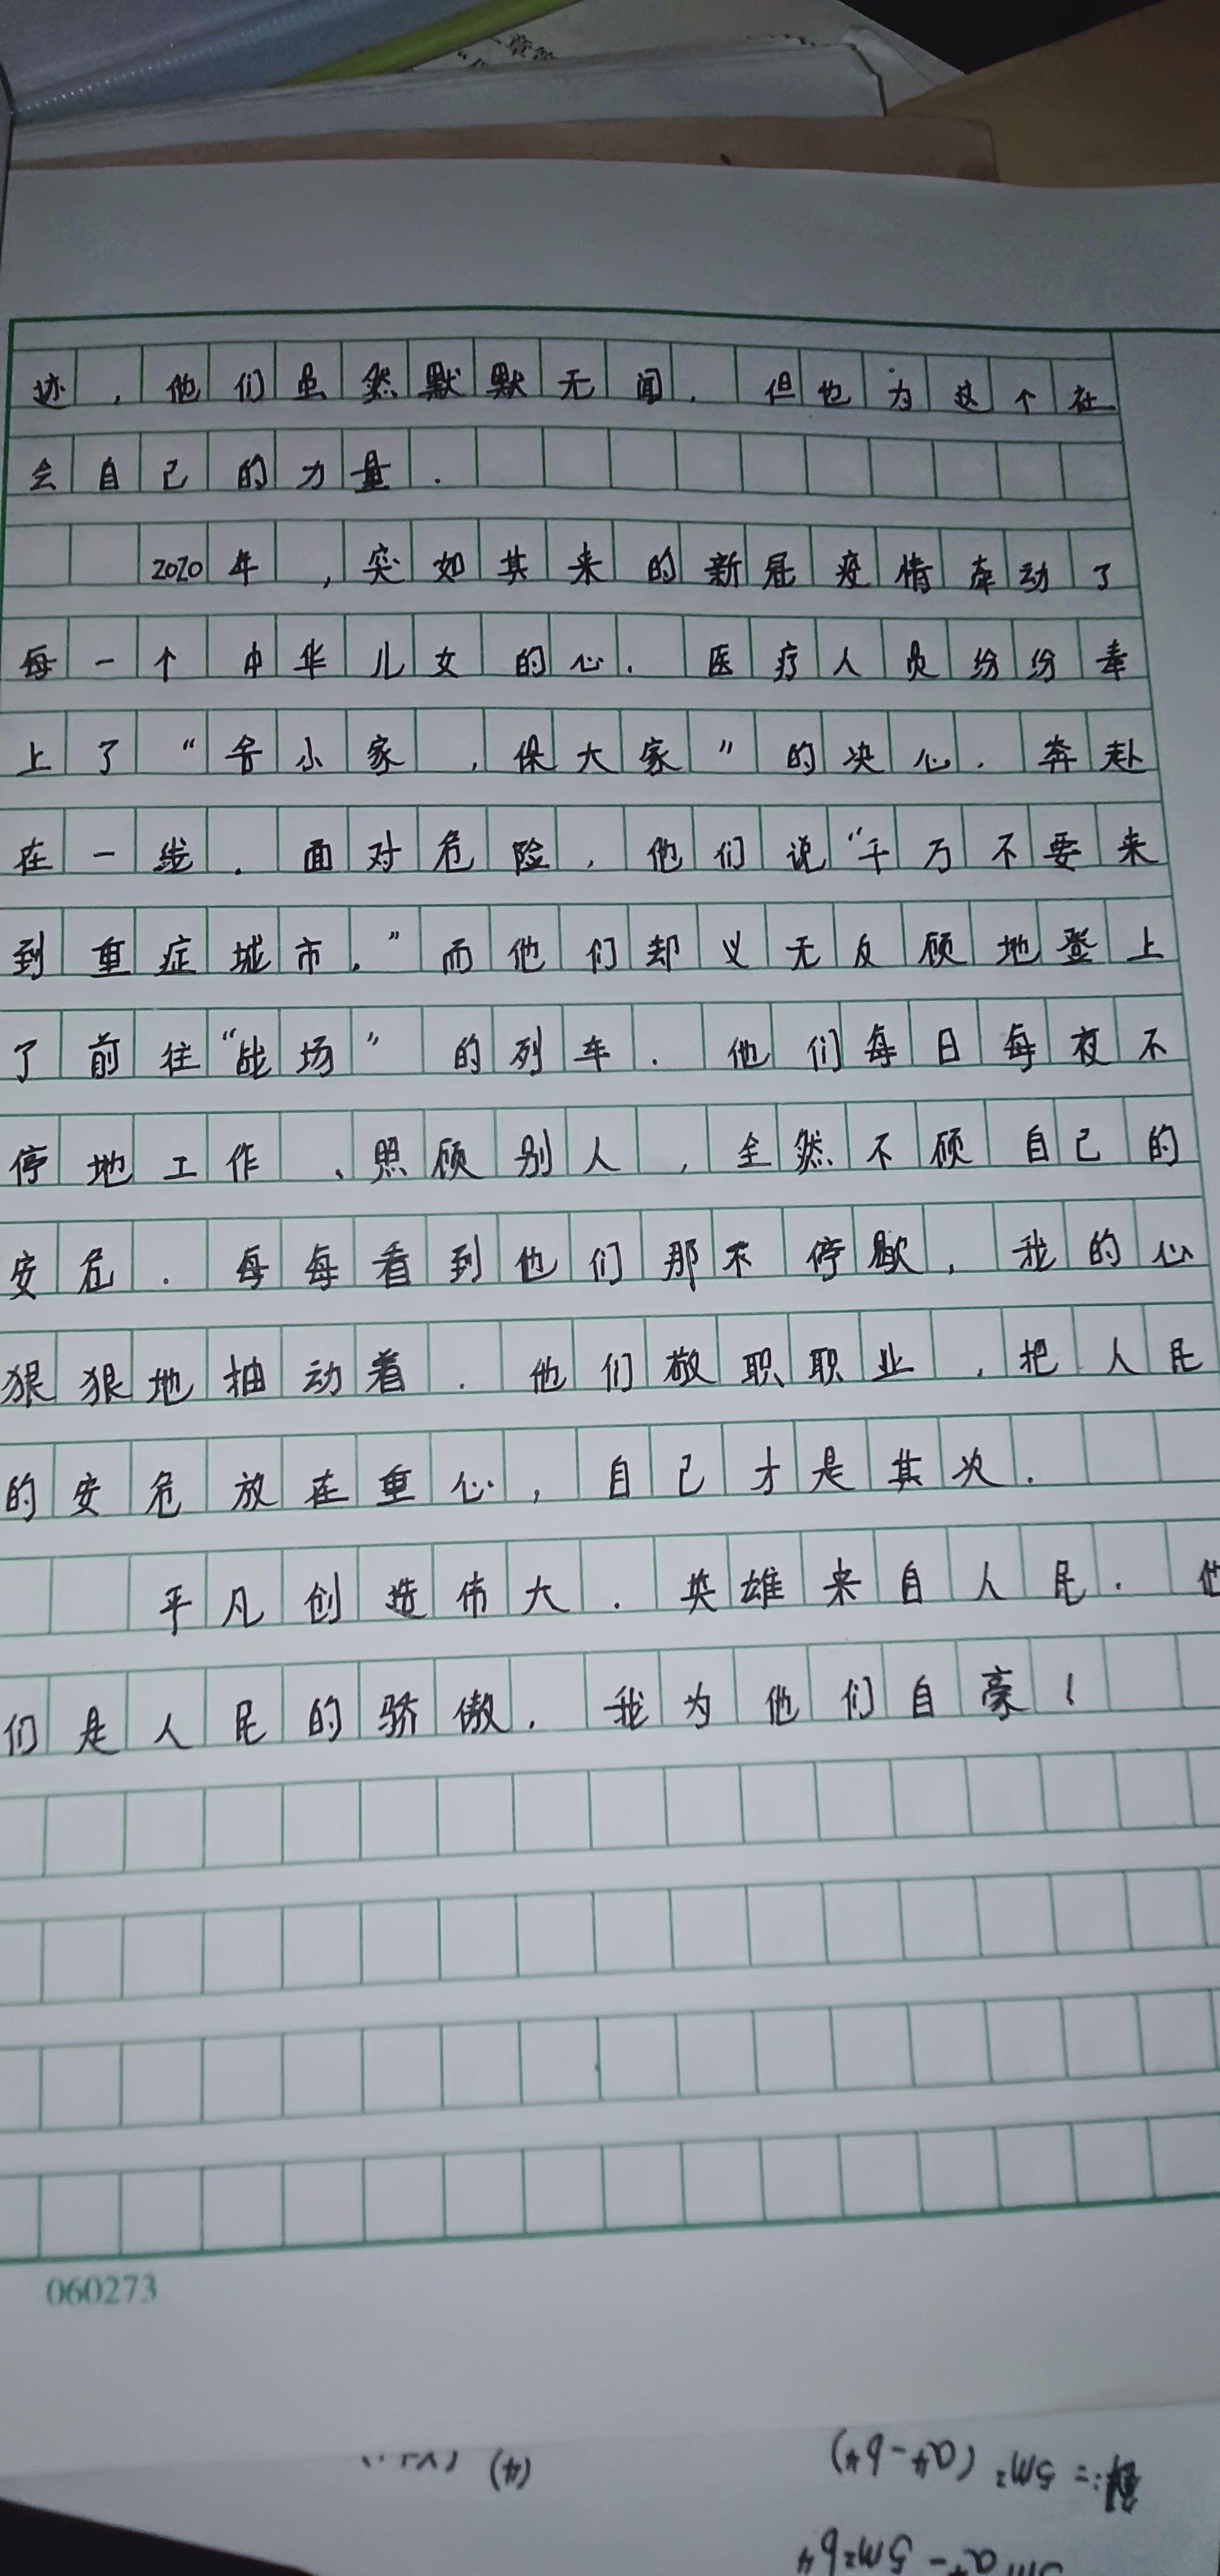 迹，他们虽然默默无闻．但也为这个社
会自己的力量．
2020年，突如其来的新冠疫情牵动了
每一个中华儿女的心．医疗人员纷纷奉
上了“舍小家，保大家”的决心．奔赴
在一线．面对危险，他们说“千万不要来
到重症城市．”而他们却义无反顾地登上
了前往“战场”的列车．他们每日每夜不
停地工作、照顾别人，全然不顾自己的
安危．每每看到他们那不停歇，我的心
狠狠地抽动着．他们敬职职业，把人民
的安危放在重心，自己才是其次．
平凡创造伟大．英雄来自人民．他
们是人民的骄傲．我为他们自豪！
060273
(4)
=5m²(a⁴-b⁴)
-5m²b⁴